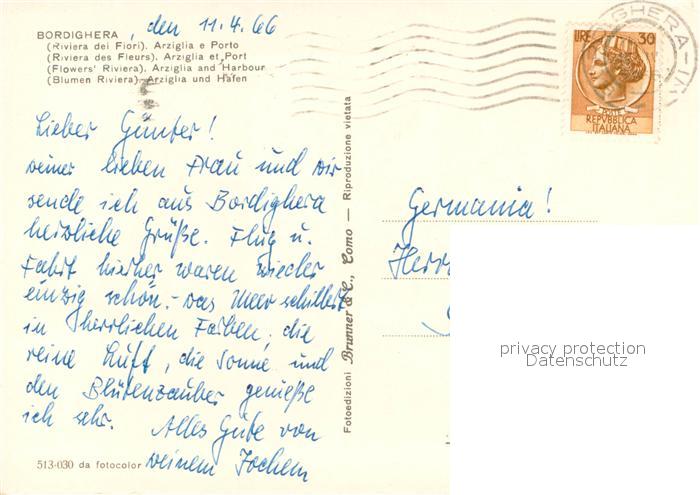 BORDIGHERA, den 11.4.66
(Riviera dei Fiori). Arziglia e Porto
(Riviera des Fleurs). Arziglia et Port
(Flowers' Riviera). Arziglia and Harbour
(Blumen Riviera). Arziglia und Hafen
Lieber Günter!
Deiner lieben Frau und Dir
sende ich aus Bordighera
herzliche Grüße. Flug u.
Fahrt hierher waren wieder
einzig schön. - Das Meer schillert
in herrlichen Farben, die
reine Luft, die Sonne und
den Blütenzauber genieße
ich sehr. Alles Gute von
Deinem Jochem
513-030 da fotocolor
Fotoedizioni Brunner & C., Como — Riproduzione vietata
LIRE 30
POSTE
REPVBBLICA
ITALIANA
Germania!
Herr
privacy protection
Datenschutz